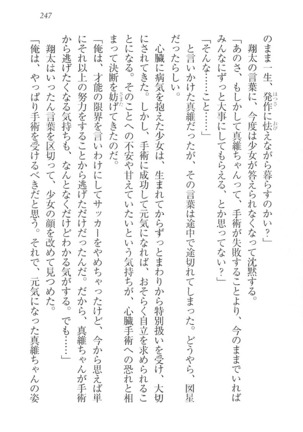 247
のまま一生、発作に怯えながら暮らすのかい？」
翔太の言葉に、今度は少女が答えなくて沈黙する。
「あのさ、もしかして真維ちゃんって、手術が失敗することより、今のままでいれば
みんなにずっと大事にしてもらえる、とか思ってない？」
「そんな……こと……」
と言いかけた真維だったが、その言葉は途中で途切れてしまった。どうやら、図星
だったらしい。
心臓に病気を抱えた少女は、生まれてからずっとまわりから特別扱いを受け、大切
にされてきた。しかし、手術に成功して元気になれば、おそらく自立を求められるこ
とになる。そのことへの不安や甘えていたいという気持ちが、心臓手術への恐れと相
まって決断を妨げてきたのだ。
「俺は、才能の限界を言いわけにしてサッカーをやめちゃったけど、今から思えば単
にそれ以上の努力をすることから逃げただけだったんだ。だから、真維ちゃんが手術
から逃げたくなる気持ちも、なんとなくだけどわかる気がする。でも……」
翔太はいったん言葉を区切って、少女の顔を改めて見つめた。
「俺は、やっぱり手術を受けるべきだと思う。それで、元気になった真維ちゃんの姿